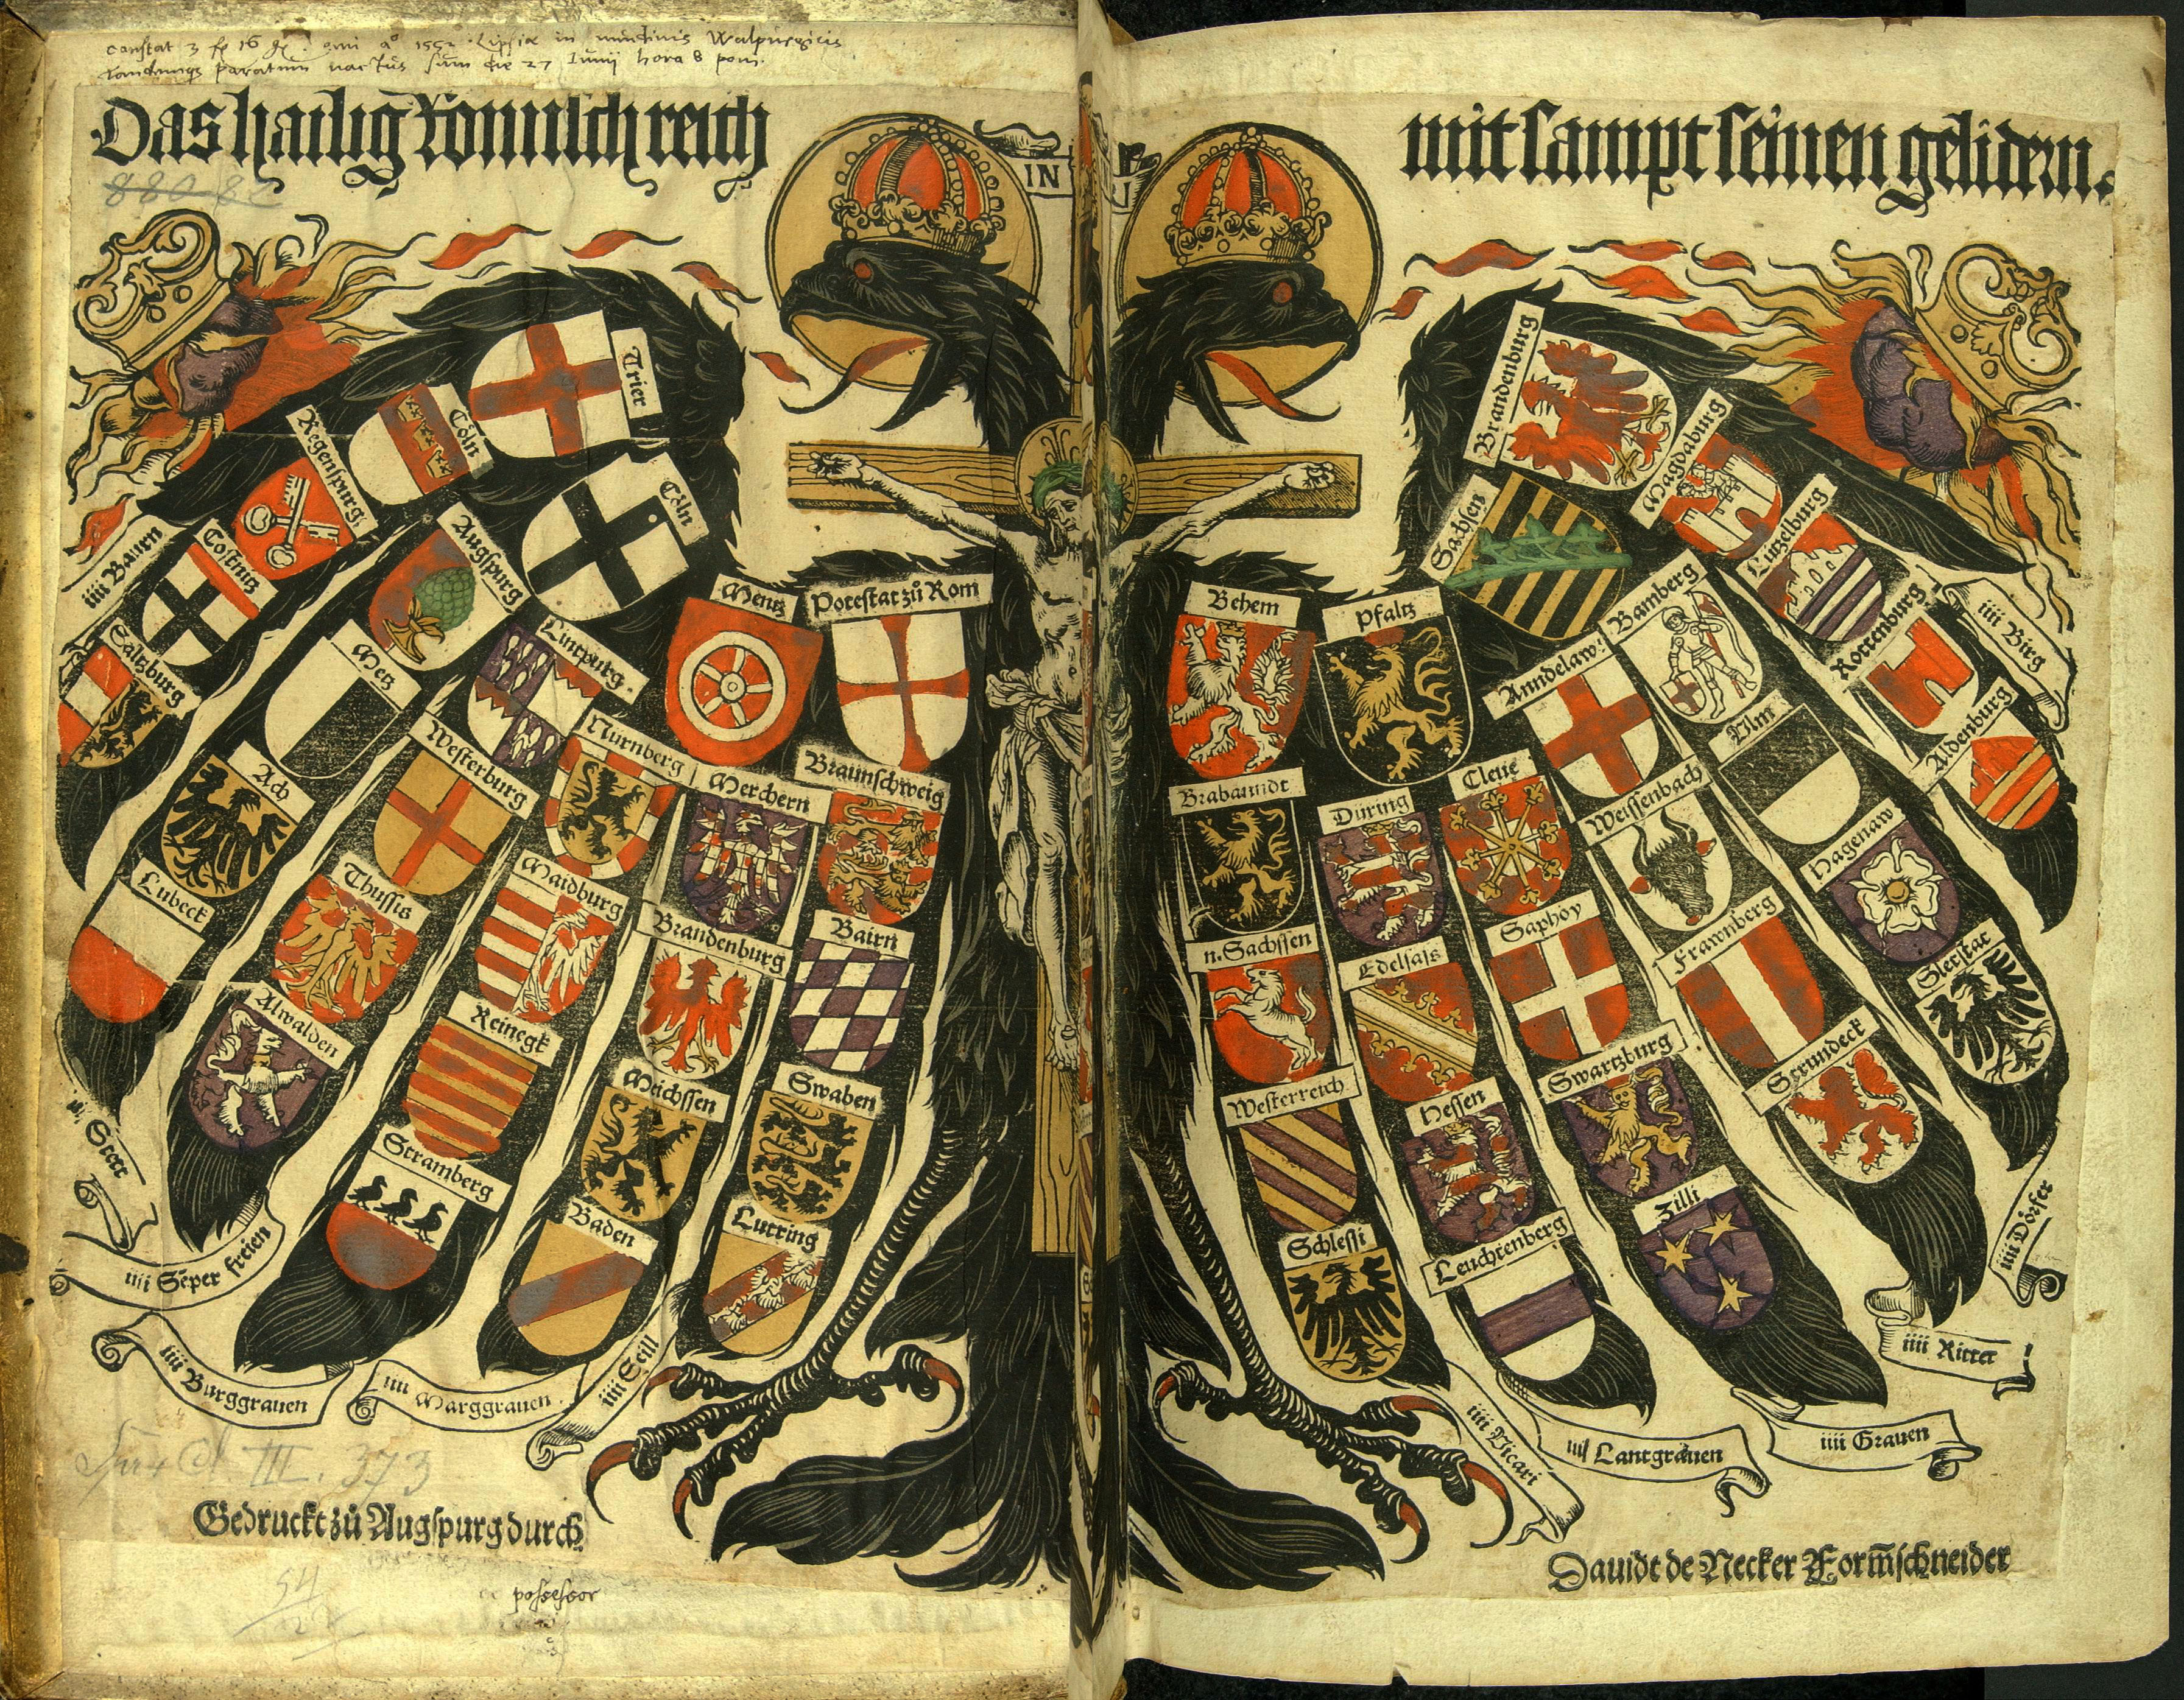 constat 3 fl 16 gl. emi aº 1552 Lipsiæ in nundinis Walpurgicis
tandemqs paratum nactus sum die 27 Iunii hora 8 pom.
Das hailig Römisch reich mit sampt seinen gelidern.
88080
IN RI
Trier
Cöln
Regenspurg.
iiii Baurn
Costnitz
Saltzburg
Cöln
Augspurg
Metz
Ach
Lubeck
Mentz
Potestat zů Rom
Lutpurg.
Westerburg
Thussis
Alwalden
Nurnberg
Maidburg
Reinegk
Stramberg
Merchern
Brandenburg
Meichssen
Baden
Braunschweig
Bairn
Swaben
Lutring
Behem
Pfaltz
Sachsen
Brandenburg
Magdaburg
Lützelburg
Rottenburg
iiii Birg
Aldenburg
Bamberg
Ulm
Hagenaw
Sletstat
Anndelaw
Weissenbach
Frawnberg
Strundeck
Cleue
Saphoy
Swartzburg
Zilli
Düring
Edelsas
Hessen
Leuchtenberg
Brabanndt
n. Sachssen
Westerreich
Schlesi
iiii Stett
iiii Semper freien
iiii Burggrauen
iiii Marggrauen
iiii Seill
iiii Vicari
iiii Lantgrauen
iiii Grauen
iiii Ritter
iiii Dörfer
III. 373
Gedruckt zů Augspurg durch
Dauidt de Necker Formschneider
54
possessor